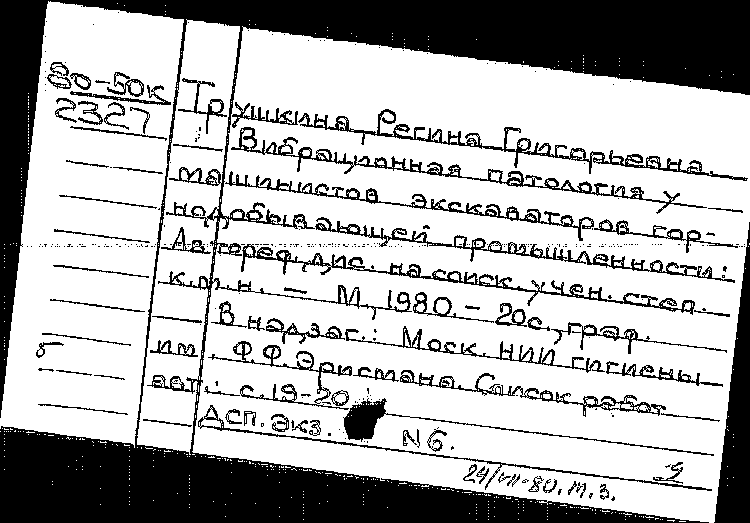 80-50к
2327
Трушкина, Регина Григорьевна.
Вибрационная патология у
машинистов экскаваторов гор-
нодобывающей промышленности:
Автореф. дис. на соиск. учен. степ.
к.м.н. — М., 1980. - 20с., граф.
В надзаг.: Моск. НИИ гигиены
б
им. Ф.Ф. Эрисмана. Список работ
авт.: с. 19-20
ДСП. Экз. N6.
24/VII-80. М.З.